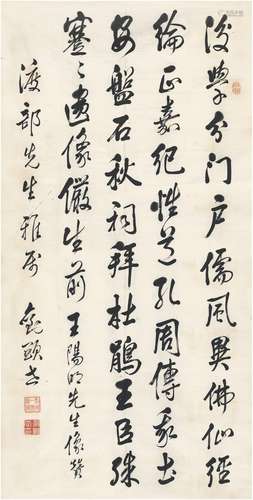 後學分門戶儒風異佛仙經
綸正嘉紀性道孔周傳茅土
安盤石秋祠拜杜鵑王臣殊
蹇〻遺像儼生前 王陽明先生像贊
渡部先生雅屬 頤書